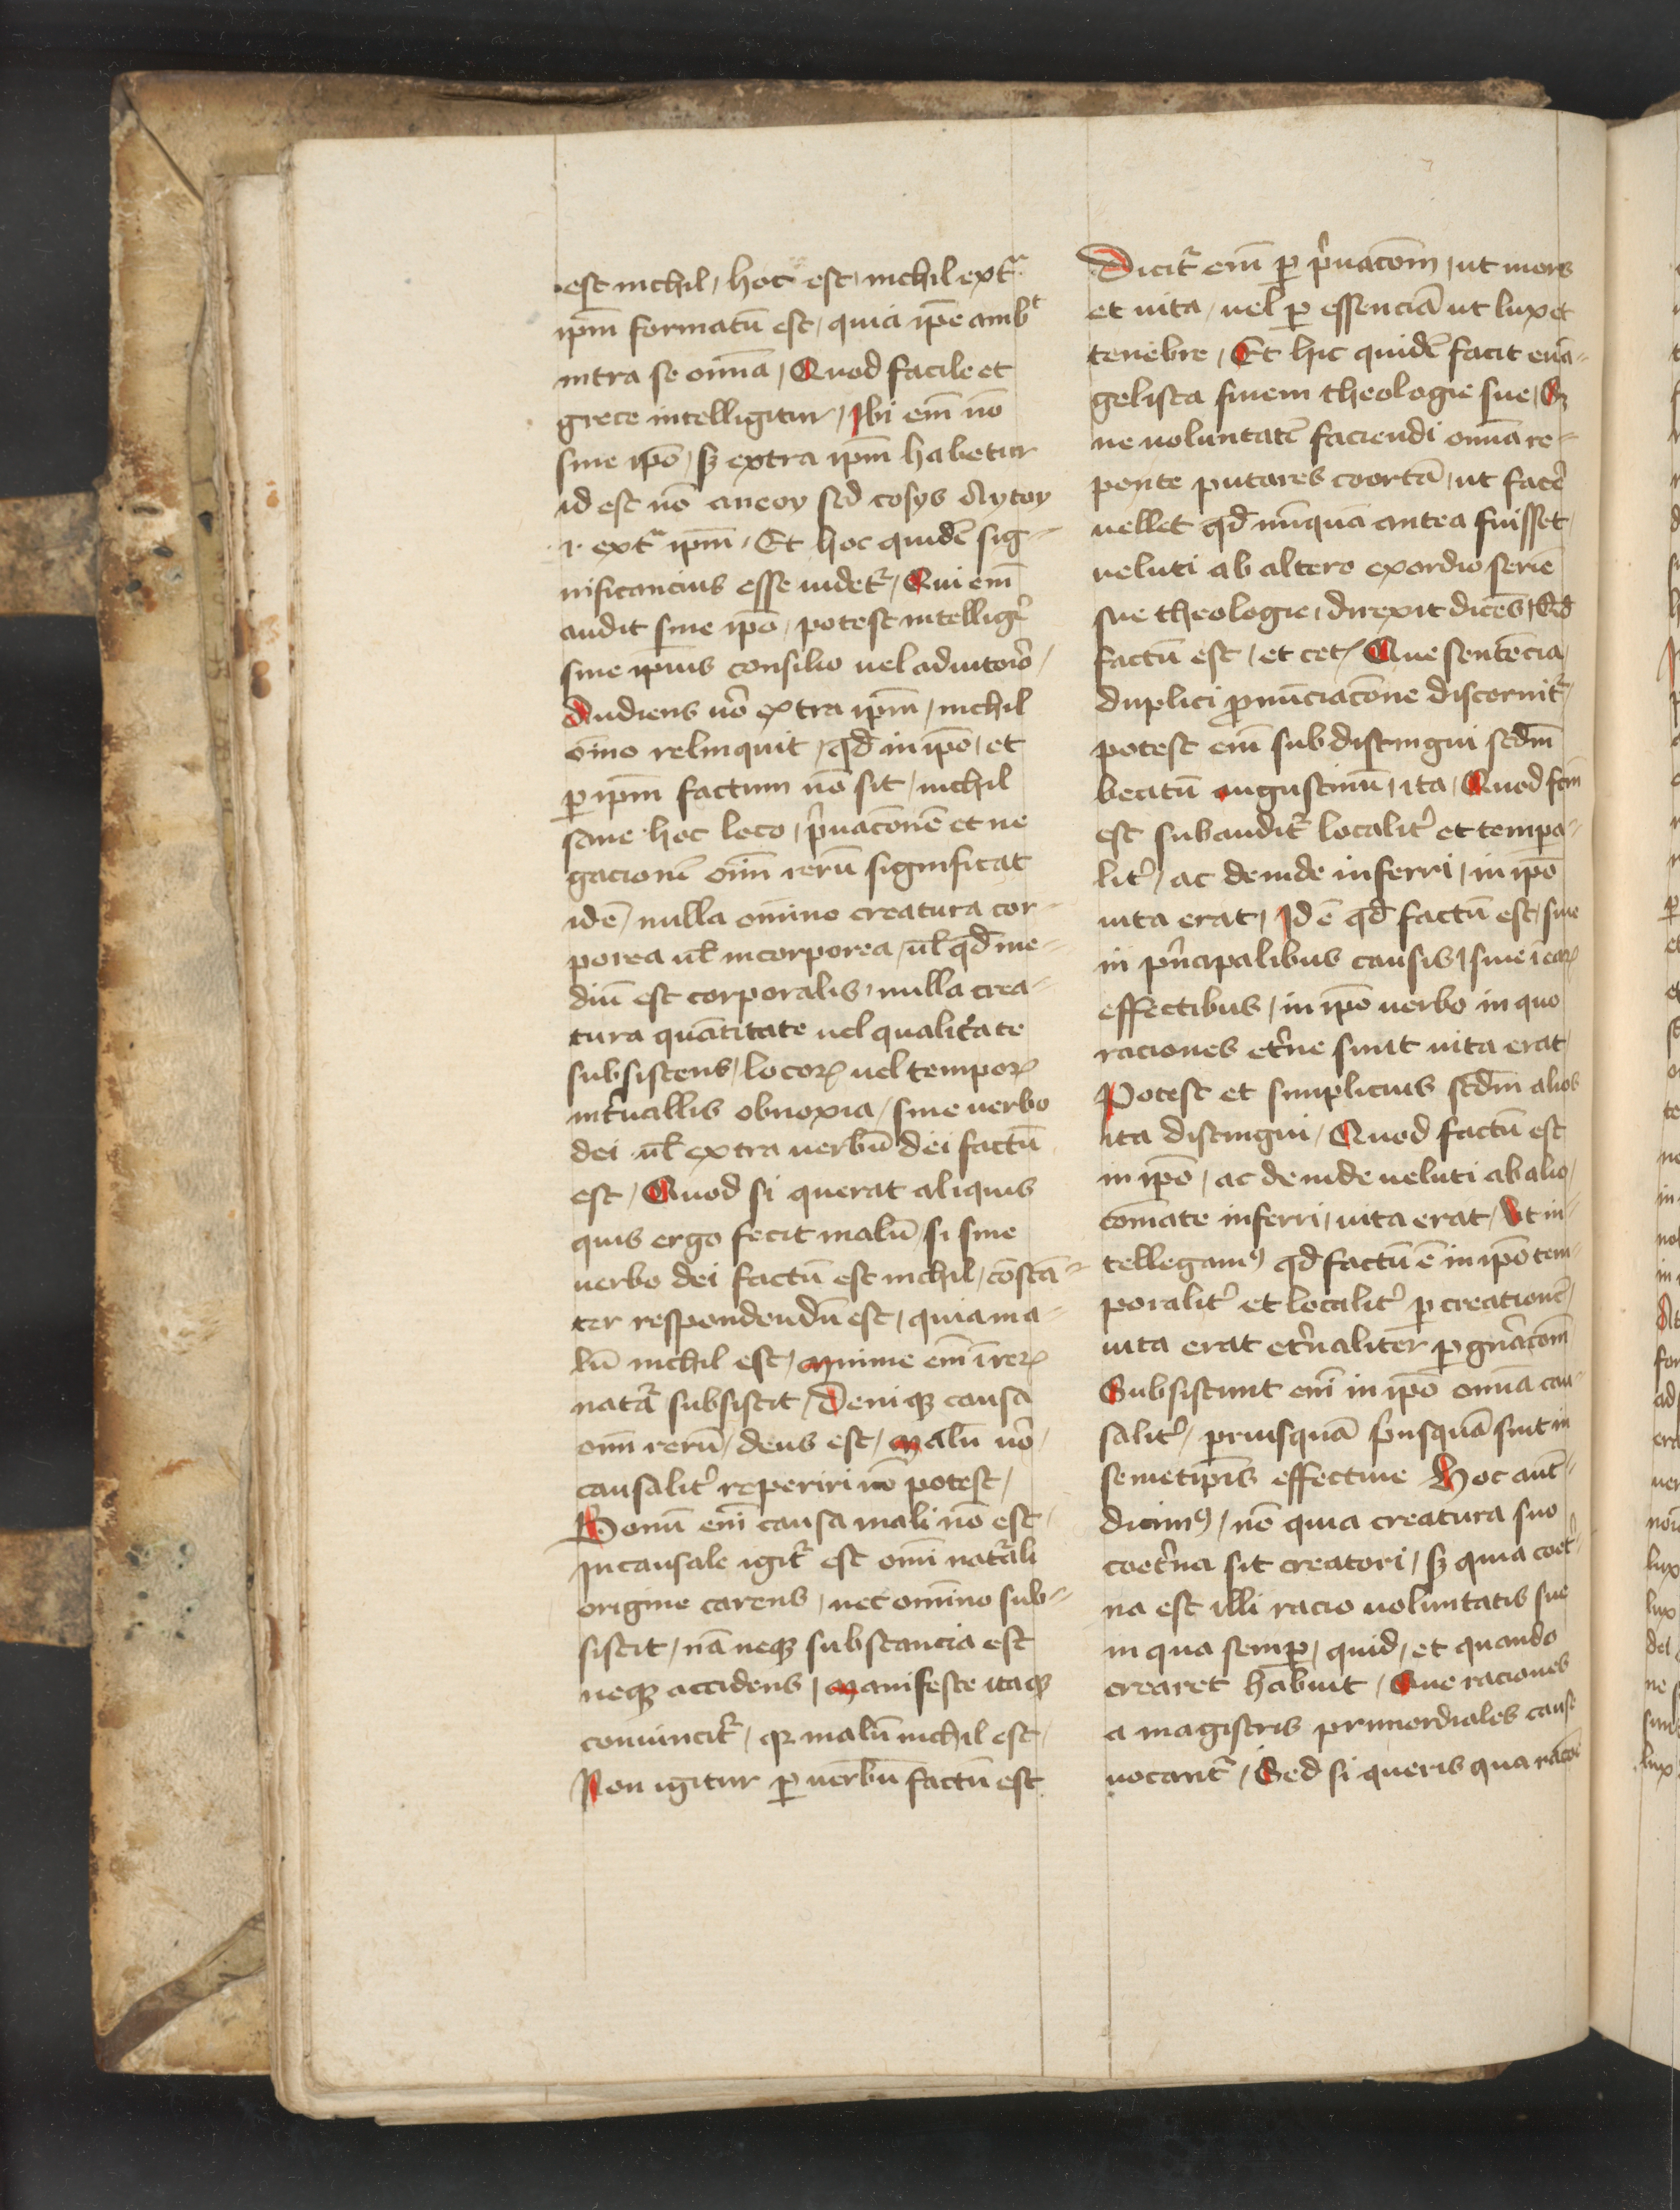 est nichil / hoc est / nichil extᵃ
ip̄m formatū est / quia ip̄e ambᵗ
intra se om̄ia / Quod facile et
grece intelligitur / Ibi em̄ nō
sine ip̄o / sꝫ extra ip̄m habetur
id est nō aneoy sed cosys Aytoy
.i. extᵃ ip̄m / Et hoc quidē sig-
nificancius esse uidetᷣ / Qui em̄
audit sine ip̄o / potest intelligē
sine ip̄ius consilio uel adiutorō /
Audiens uō extra ip̄m / nichil
om̄o relinquit / qd̄ in ip̄o / et
ꝑ ip̄m factum nō sit / nichil
sane hoc loco / p̄uacōnē et ne
gacionē oīm rerū significat
idē / nulla om̄ino creatura cor-
porea ul̄ incorporea / ul̄ qd̄ me-
diū est corporalis / nulla crea-
tura quātitate uel qualitate
subsistens / locorꝫ uel temporꝫ
int̄uallis obnoxia / sine uerbo
dei ul̄ extra uerbū dei factū
est / Quod si querat aliquis
quis ergo fecit malū si sine
uerbo dei factū est nichil / cōstā-
ter respondendū est / quia ma-
lū nichil est / Minime em̄ ī rerꝫ
natᵃ subsistit / Deniqꝫ causa
oīm rerū / deus est / Malū uō
causalit᷑ reperiri nō potest /
Bonū em̄ causa mali nō est /
Incausale igitᷣ est om̄i natᵃli
origine carens / nec om̄ino sub-
sistit / nā neqꝫ substancia est
neqꝫ accidens / Manifeste itaqꝫ
conuincitᷣ / qꝛ malū nichil est /
Non igitur ꝑ uerbū factū est
Dicitᷣ em̄ ꝑ p̄uacōm / ut mors
et uita / uel ꝑ essenciā ut lux et
tenebre / Et hic quidē facit euā-
gelista finem theologie sue / Sꝫ
ne uoluntatē faciendi om̄ia re-
pente putares coortā / ut facē
uellet qd̄ nūquā antea fuisset /
ueluti ab altero exordio seriē
sue theologie / direxit dicēs / Qd̄
factū est / et cetꝫ Que sentēcia
duplici ꝓnūciacōne discernitᷣ /
potest em̄ subdistingui scdm̄
beatū augustinū / ita / Quod fcm̄
est subauditᷣ localit᷑ et tempa-
lit᷑ / ac deinde inferri / in ip̄o
uita erat / Id ē qd̄ factū est / siue
in p̄ncipalibus causis / siue ī earꝫ
effectibus / in ip̄o uerbo in quo
raciones et̄ne sunt uita erat
Potest et simplicius scdm̄ alios
ita distingui / Quod factū est
in ip̄o / ac deinde ueluti ab alio /
cōmate inferri / uita erat / Ut in-
tellegamꝰ qd̄ factū ē in ip̄o tem-
poralit᷑ et localit᷑ ꝑ creationē /
uita erat et̄naliter ꝑ gn̄acōm
Subsistunt em̄ in ip̄o om̄ia cau-
salit᷑ / priusquā p̄usquā sint in
semetip̄is effectiue Hoc aut̄
dicimꝰ / nō quia creatura suo
coet̄na sit creatori / sꝫ quia coet̄-
na est illi racio uoluntatis sue
in qua semꝑ / quid / et quando
crearet habuit / Que raciones
a magistris primordiales cause
uocantᷣ / Sed si queris qua racōe